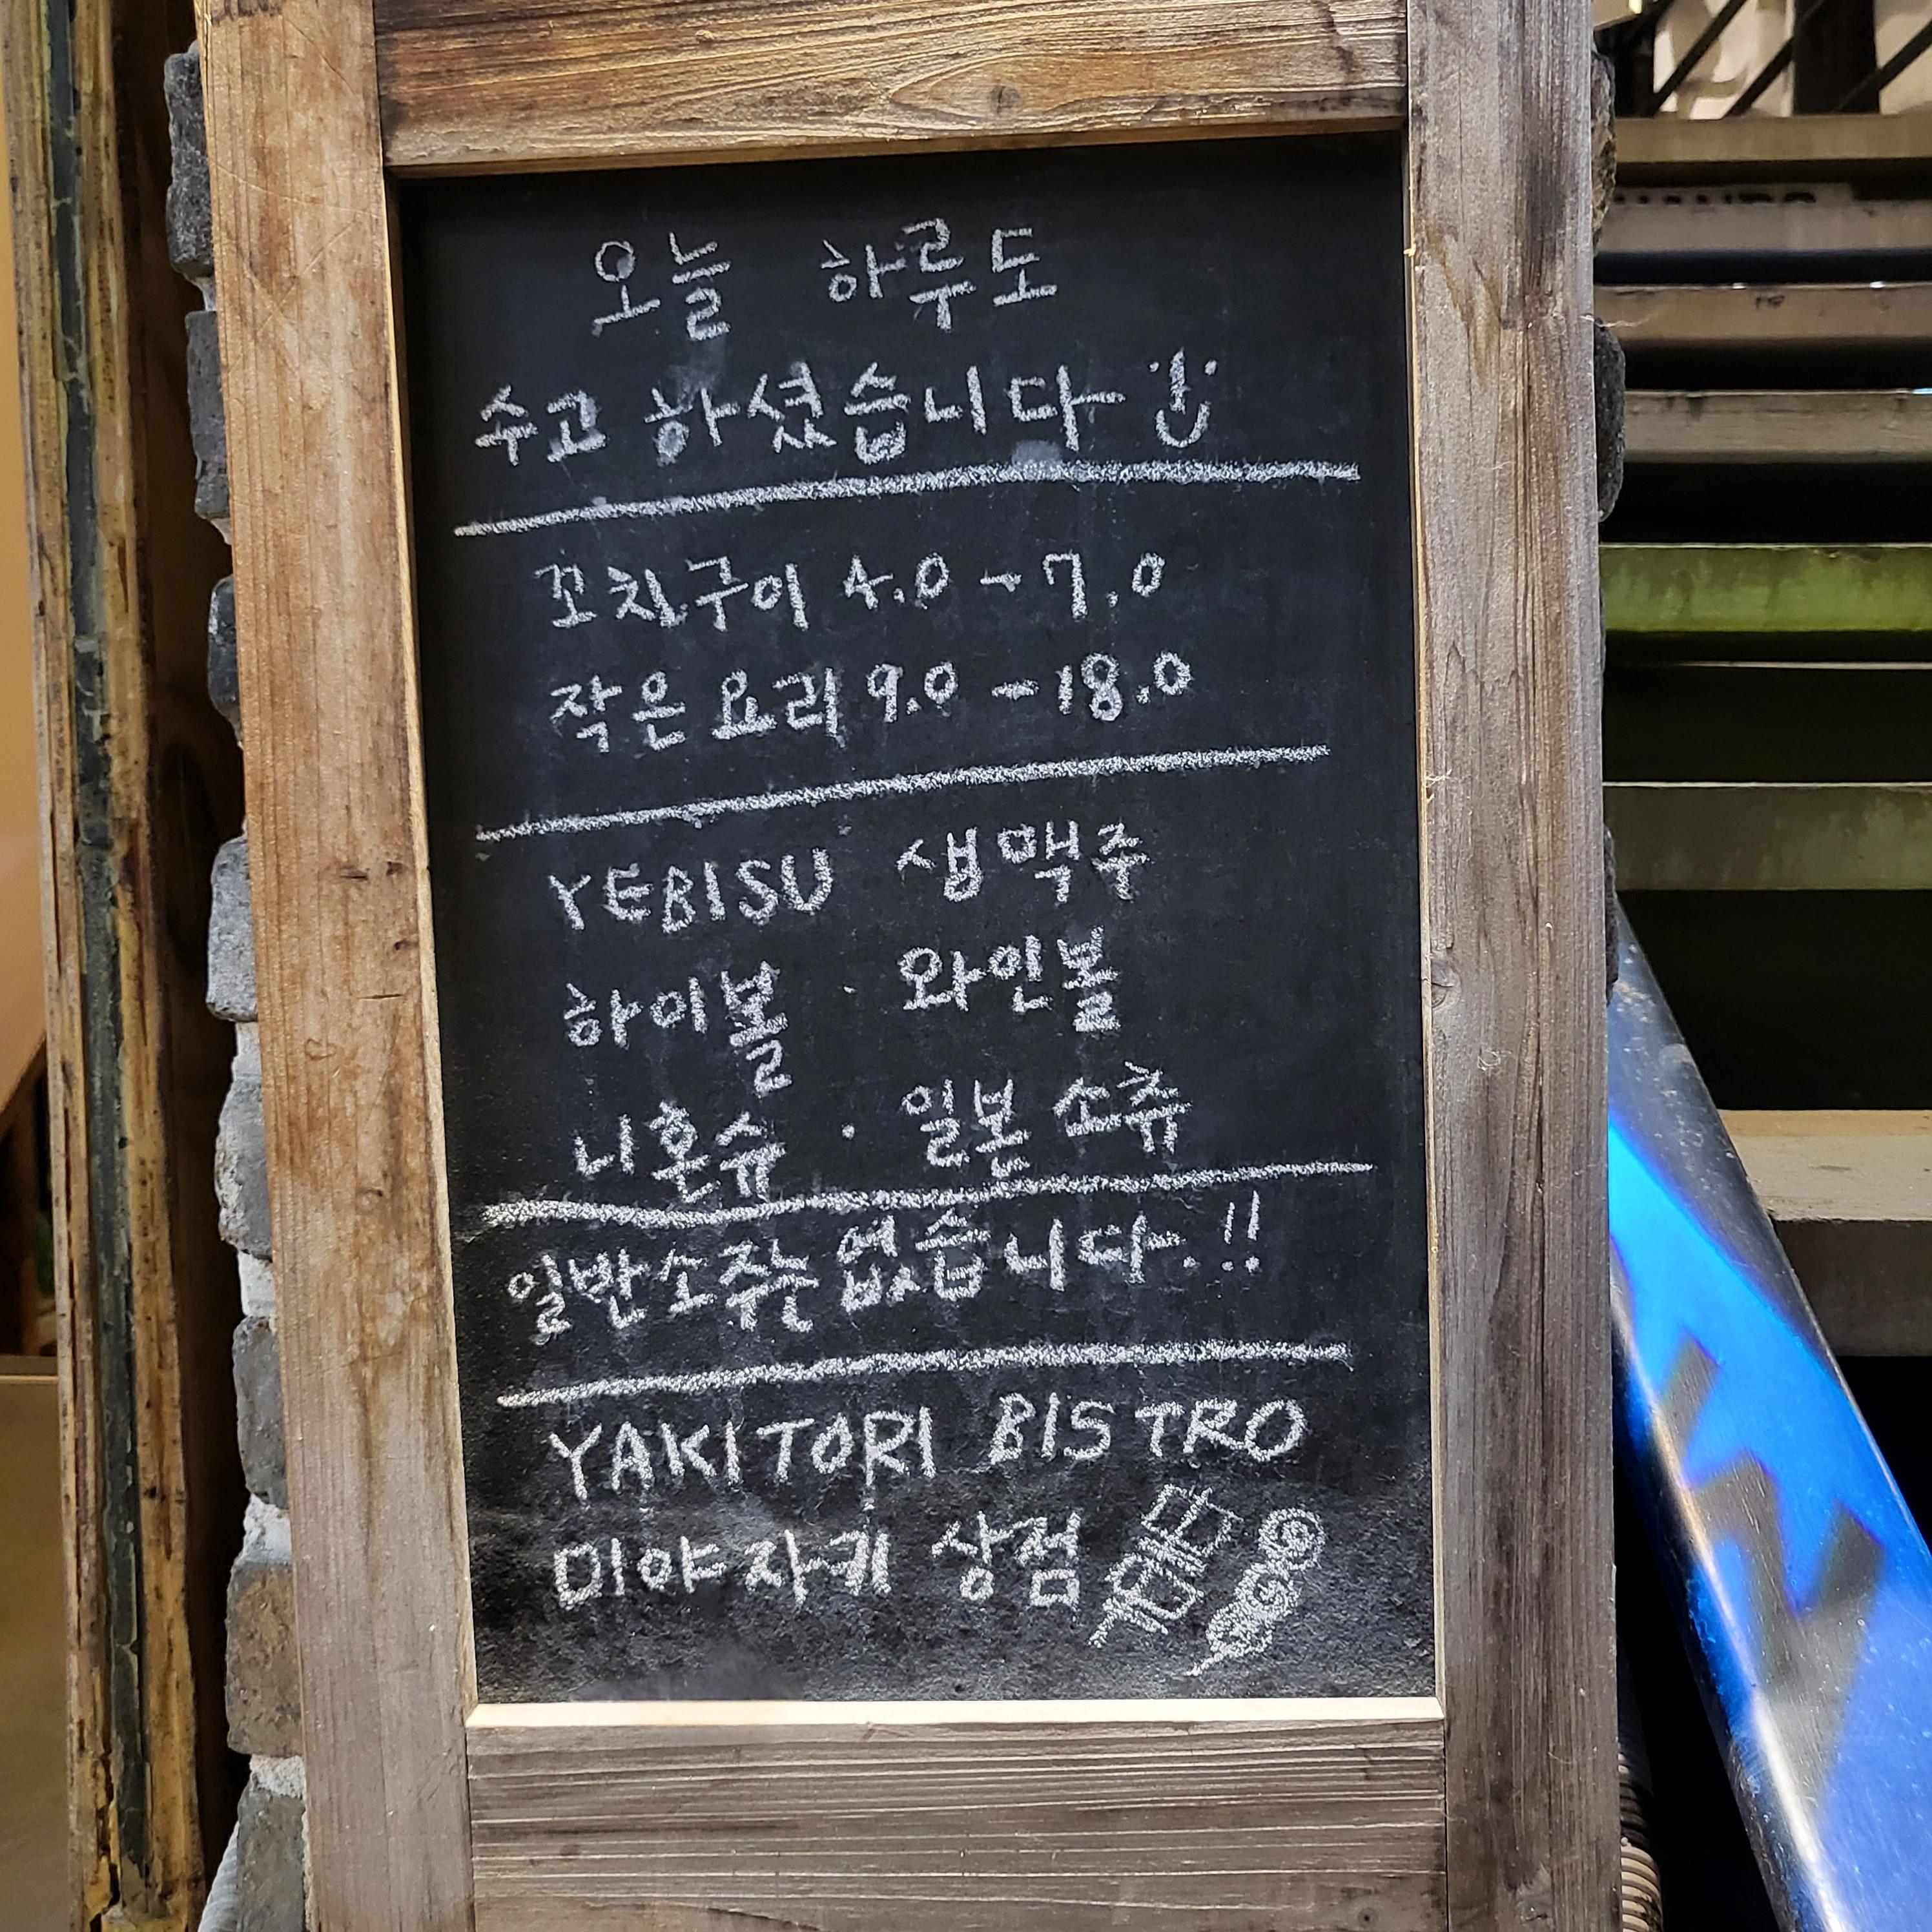 오늘 하루도
수고 하셨습니다
꼬치구이 4.0 - 7.0
작은 요리 9.0 - 18.0
YEBISU 생맥주
하이볼 · 와인볼
니혼슈 · 일본 소츄
일반소주는 없습니다.!!
YAKITORI BISTRO
미야자키 상점